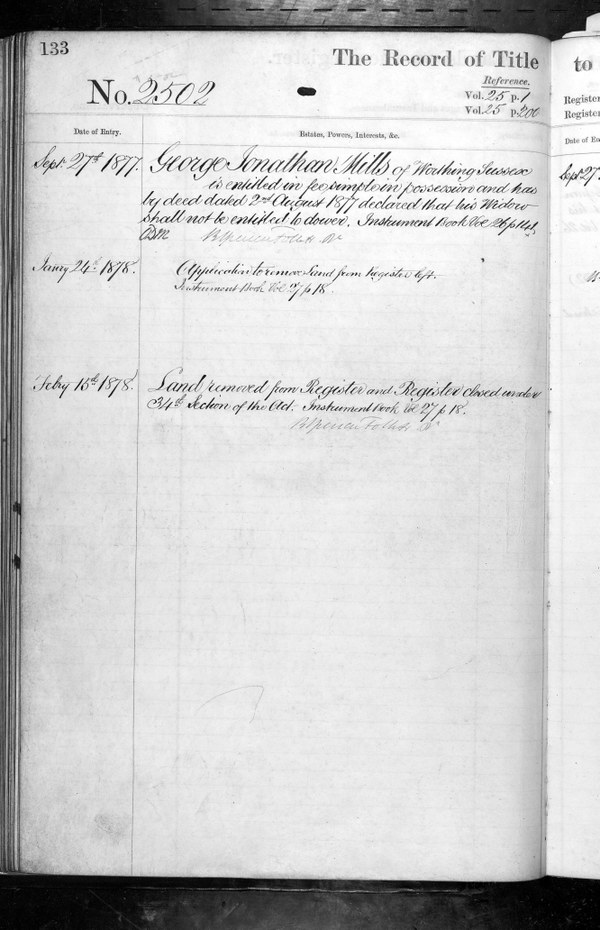 133
The Record of Title
to
No. 2502
Reference.
Vol. 25 p. 1
Vol. 25 p. 200
Register
Register
Date of Entry.
Estates, Powers, Interests, &c.
Date of En
Sept 27th 1877.
George Jonathan Mills of Worthing Sussex
is entitled in fee simple in possession and has
by deed dated 2nd August 1877 declared that his Widow
shall not be entitled to dower. Instrument Book Vol 26 p
Sept 27
Janry 24th 1878.
Application to remove Land from Register &c.
Instrument Book Vol 27 p 18.
Febry 15th 1878.
Land removed from Register and Register closed under
34th Section of the Act. Instrument Book Vol 27 p 18.